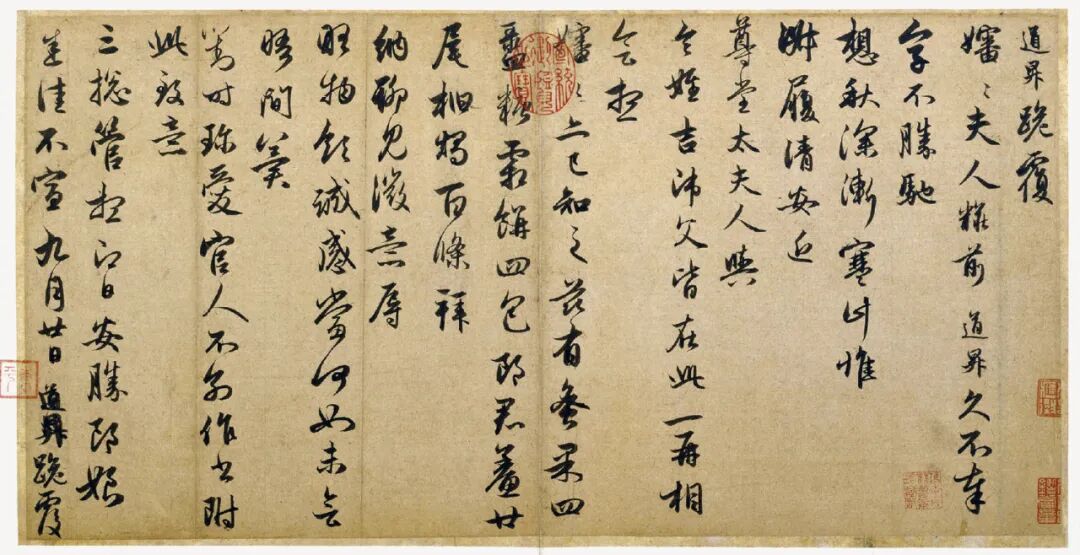 道昇跪覆
嬸嬸夫人粧前道昇久不奉
字不勝馳
想秋深漸寒計惟
淑履清安近
尊堂太夫人與
令姪吉師父皆在此一再相
會想
嬸嬸亦已知之茲有蜜果四
盝糖霜餅四包郎君鯗廿
尾桕燭百條拜
納聊見微意辱
物領誠感當何如未會
晤間冀
對時珍愛官人不別作書附
此致意
三總管想即日安勝郎娘
佳不宣九月廿日道昇跪覆